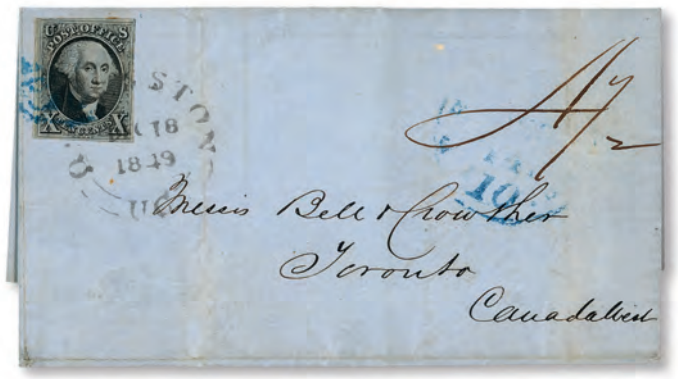 U S
POST OFFICE
X TEN CENTS X
STON
18
1849
10
Messrs Bell & Crowther
Toronto
Canada West